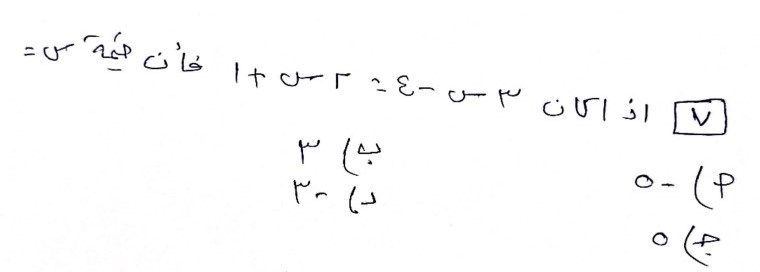 ٧ اذا كان ٣س - ٤ = ٢س + ١ فأن قيمة س =
أ) -٥
ب) ٣
ج) ٥
د) -٣